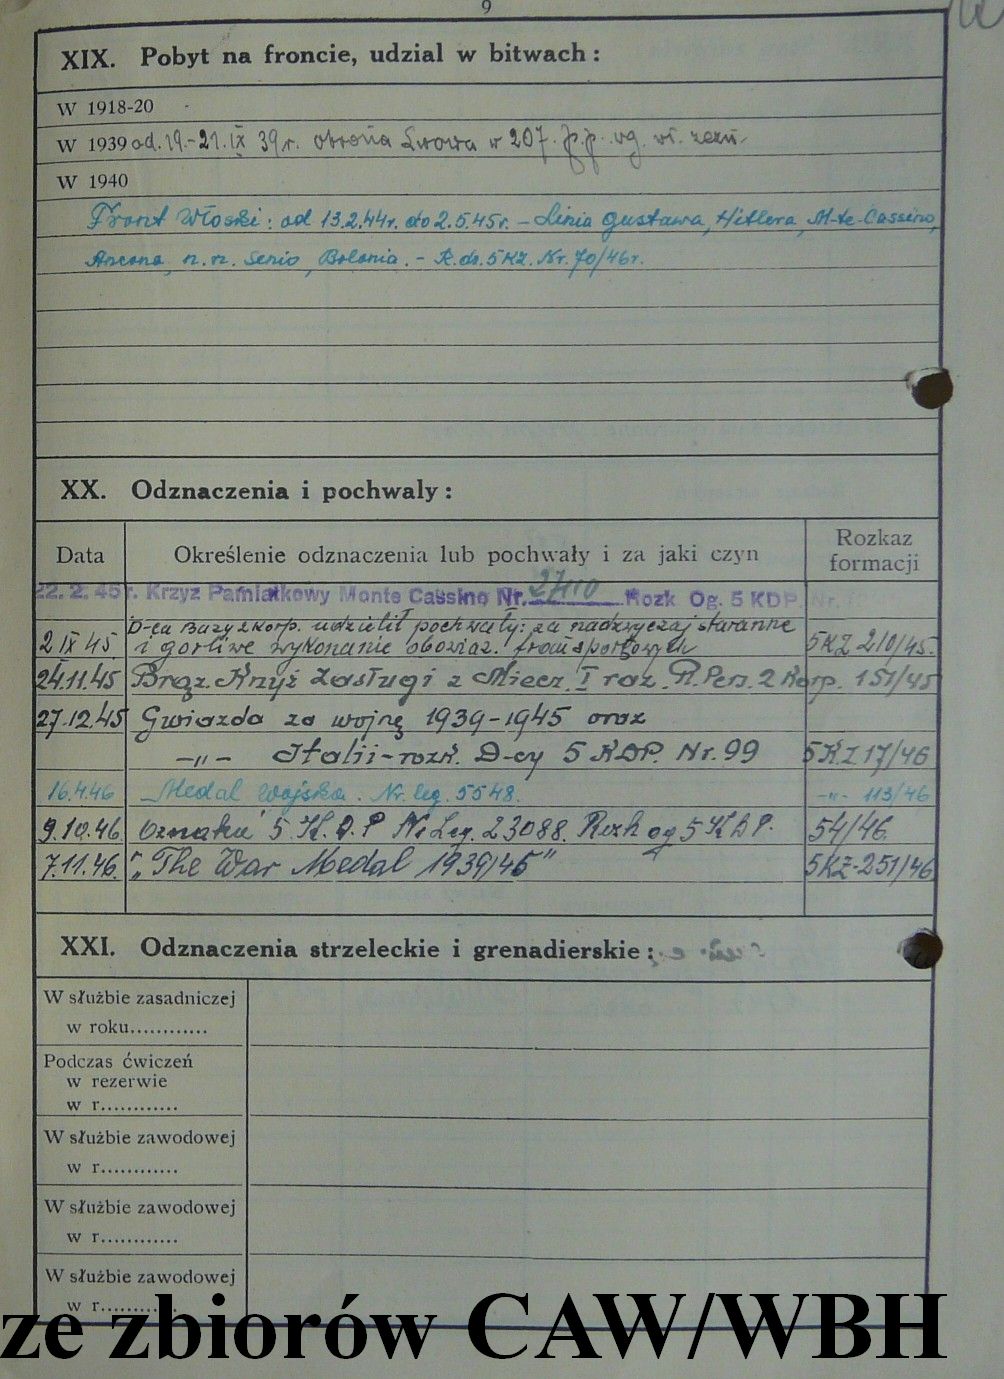 9
XIX. Pobyt na froncie, udzial w bitwach :
W 1918-20 -
W 1939 od. 19.-21. IX 39 r. obrona Lwowa w 207. p.p. wg. wł. zezn.
W 1940
Front Włoski: od 13.2.44r. do 2.5.45r. - Linia Gustawa, Hitlera, M-te-Cassino,
Ancona, n.rz. Senio, Bolonia. - R.dz. 5 KZ. Nr. 70/46r.
XX. Odznaczenia i pochwaly :
Data Określenie odznaczenia lub pochwały i za jaki czyn Rozkaz formacji
22. 2. 45 r. Krzyż Pamiątkowy Monte Cassino Nr. 27110 Rozk Og. 5 KDP. Nr.
D-ca Bazy 2 korp. udzielił pochwały: za nadzwyczaj staranne
2 IX 45 i gorliwe wykonanie obowiąz. transportowych 5KZ 210/45.
24.11.45 Brąz. Krzyż Zasługi z Miecz. I raz. R. Pers. 2 Korp. 151/45
27.12.45 Gwiazda za wojnę 1939-1945 oraz
-„- Italii-rozk. D-cy 5 KDP. Nr. 99 5 KZ 17/46
16.4.46 Medal Wojska. Nr. leg. 5548. -„- 113/46
9.10.46 Oznaka 5 K.D.P Nr Leg. 23088. Rozk og 5 KDP. 54/46
7.11.46. „The War Medal 1939/45” 5KZ-251/46
XXI. Odznaczenia strzeleckie i grenadierskie :
W służbie zasadniczej
w roku............
Podczas ćwiczeń
w rezerwie
w r............
W służbie zawodowej
w r............
W służbie zawodowej
w r............
W służbie zawodowej
w r............
ze zbiorów CAW/WBH